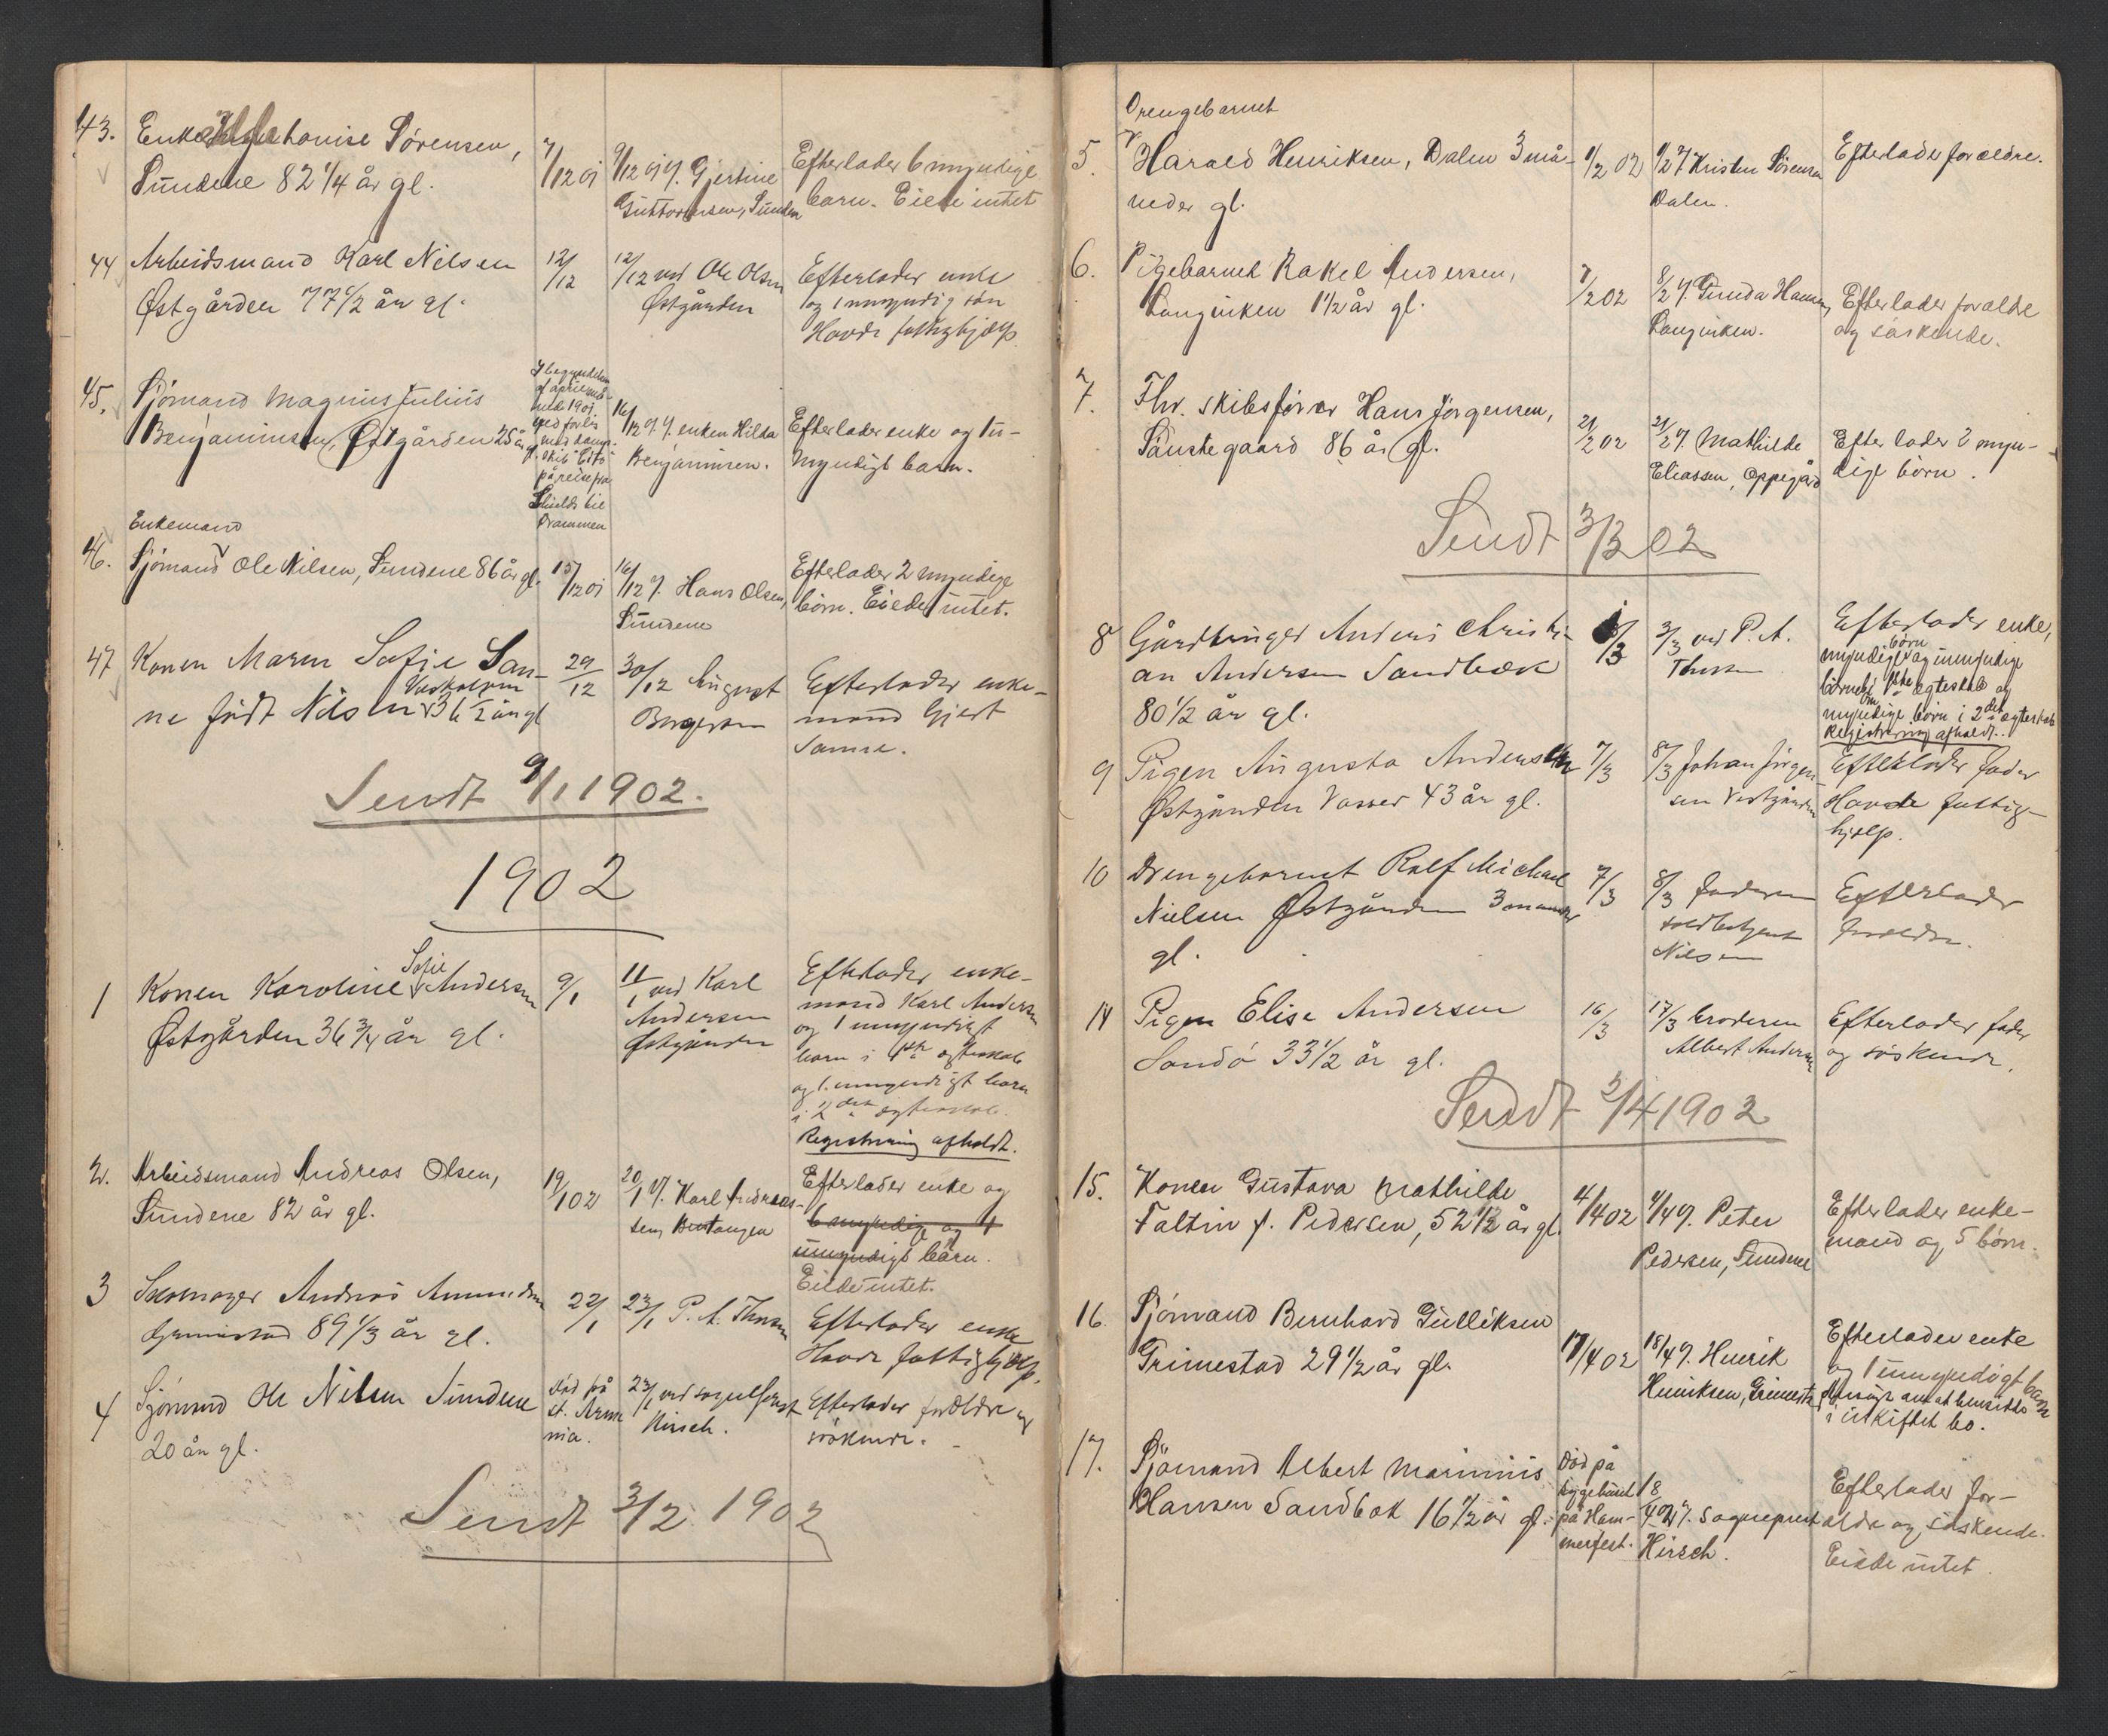 43. Enken Louise Sørensen,
Sundene 82 1/4 år gl.
7/12 01
9/12 01 v. Gjertine
Guttormsen, Sunden
Efterlader 6 myndige
barn. Eiede intet
44 Arbeidsmand Karl Nilsen
Østgården 77 1/2 år gl.
12/12
12/12 ved Ole Olsen
Østgården
Efterlader enke
og 1 umyndig søn
Havde fattighjælp
45. Sjømand Magnus Julius
Benjaminsen, Østgården 25 år gl.
I begyndelsen
af april må-
ned 1901.
ved forlis
med damp-
skib
på reise fra
Shields til
Drammen
16/12 01 v. enken Hilda
Benjaminsen.
Efterlader enke og 1 u-
myndigt barn.
Enkemand
46. Sjømand Ole Nilsen, Sundene 86 år gl.
15/12 01
16/12 v. Hans Olsen,
Sundene
Efterlader 2 myndige
børn. Eiede intet.
47 Konen Maren Sofie San-
ne født Nilsen 36 1/2 år gl
29/12
30/12 August
Borgersen
Efterlader enke-
mand Gjert
Sanne.
Sendt 9/1 1902.
1902
Sofie
1 Konen Karoline Andersen
Østgården 36 3/4 år gl.
9/1
11/1 ved Karl
Andersen
Østgården
Efterlader enke-
mand Karl Andersen
og 1 umyndigt
barn i 1ste ægteskab
og 1 umyndigt barn
i 2det ægteskab.
Registrering afholdt.
2. Arbeidsmand Andreas Olsen,
Sundene 82 år gl.
19/1 02
20/1 v. Karl Andreas-
sen, Buetangen
Efterlader enke og
6 myndige og 1
umyndigt børn.
Eiede intet.
3 Andreas Amundsen
89 1/3 år gl.
22/1
23/1 P. A. Thorsen
Efterlader enke
Havde fattighjælp.
4 Sjømand Ole Nilsen Sundene
20 år gl.
død på
23/1 ved sogneprest
Hirsch.
Efterlader forældre og
søskende.
Sendt 3/2 1902
Drengebarnet
5 Harald Henriksen, Dalen 3 må-
neder gl.
1/2 02
1/2 v. Kristen Sørensen
Dalen.
Efterlader forældre.
6. Pigebarnet Rakel Andersen,
Langviken 1 1/2 år gl.
7/2 02
8/2 v. Gunda Hansen,
Langviken.
Efterlader forældre
og søskende.
7. Fhv. skibsfører Hans Jørgensen,
Saustegaard 86 år gl.
21/2 02
21/2 v. Mathilde
Eliassen, Oppegård
Efterlader 2 myn-
dige børn.
Sendt 3/3 02
8 Gårdbruger Anders Christi-
an Andersen Sandbæk
80 1/2 år gl.
1/3
3/3 ved P. A.
Thorsen
Efterlader enke,
børn
myndige og umyndige
børnebørn i 1ste ægteskab og
myndige børn i 2det ægteskab
Registrering afholdt.
9 Pigen Augusta Andersen
Østgården Vasser 43 år gl.
7/3
8/3 Johan Jørgen-
sen Vestgården
Efterlader fader
Havde fattig-
hjælp.
10 Drengebarnet Rolf Michael
Nielsen Østgården 3 måneder
gl.
7/3
8/3 faderen
toldbetjent
Nilsen
Efterlader
forældre.
14 Pigen Elise Andersen
Sandø 33 1/2 år gl.
16/3
17/3 broderen
Albert Andersen
Efterlader fader
og søskende.
Sendt 2/4 1902
15. Konen Gustava Mathilde
Faltin f. Pedersen, 52 1/2 år gl.
4/4 02
4/4 v. Peter
Pedersen, Sundene
Efterlader enke-
mand og 5 børn.
16. Sjømand Bernhard Gulliksen
Grimestad 29 1/2 år gl.
17/4 02
18/4 v. Henrik
Henriksen, Grimestad
Efterlader enke
og 1 umyndigt barn
i uskiftet bo.
17. Sjømand Albert Marinius
Hansen Sandbæk 16 1/2 år gl.
Død på
sygehuset
på Ham-
merfest.
18/4 02 v. sogneprest
Hirsch.
Efterlader for-
ældre og søskende.
Eiede intet.